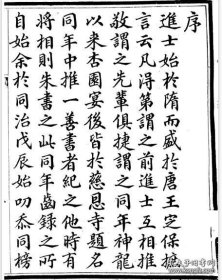 序
進士始於隋而盛於唐王定保摭
言云凡得第謂之前進士互相推
敬謂之先輩俱捷謂之同年神龍
以來杏園宴後皆於慈恩寺題名
同年中推一善書者紀之他時有
將相則朱書之此同年齒錄之所
自始余於同治戊辰始叨忝同榜